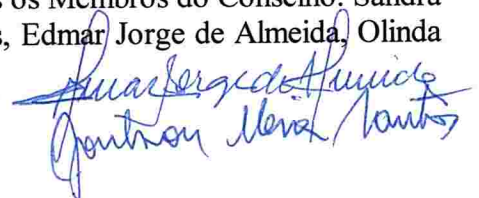 s os Membros do Conselho: Sandra
s, Edmar Jorge de Almeida, Olinda
Edmar Jorge de Almeida
Santos